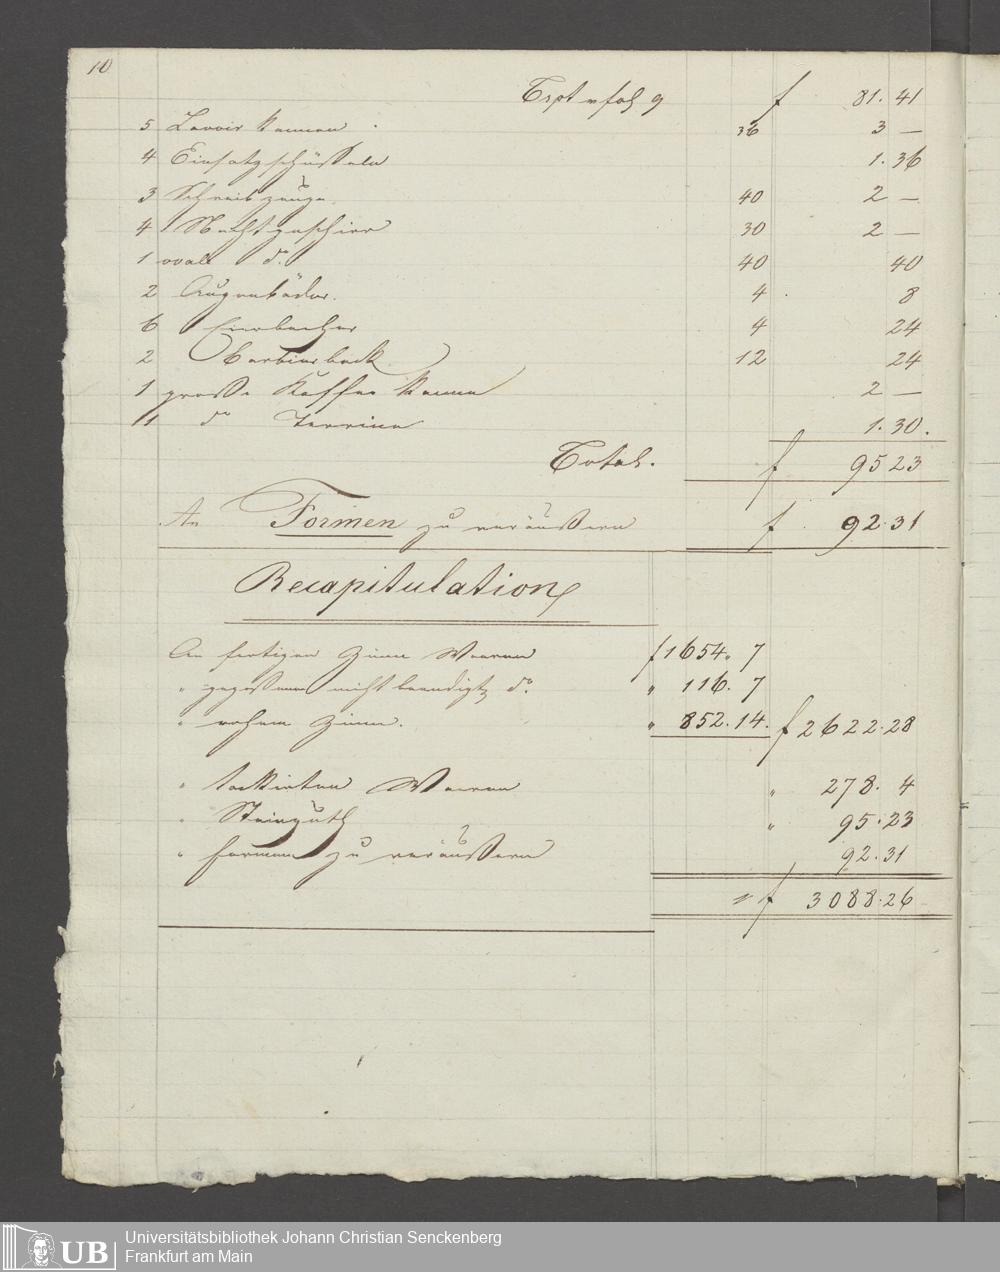 10
Trpt v fol 9 f 81. 41
5 Lavoir Kannen 36 3 —
4 Einsatzschüsseln 1. 36
3 Schreibzeuge 40 2 —
4 Nachtgeschirr 30 2 —
1 ovale do. 40 40
2 Augenbäder. 4 8
6 Eierbecher 4 24
2 Barbierbeck 12 24
1 grosse Kaffee Kanne 2 —
1 do Terrine 1. 30.
Total. f 95 23
An Formen zu veräussern f 92. 31
Recapitulation
An fertigen Zinn Waaren f 1654. 7
" gegossenen nicht beendigt do. " 116. 7
" rohem Zinn. " 852. 14. f 2622. 28
" lackirten Waaren " 278. 4
" Steinguth " 95. 23
" Formen zu veräussern 92. 31
f 3088. 26
UB Universitätsbibliothek Johann Christian Senckenberg
Frankfurt am Main